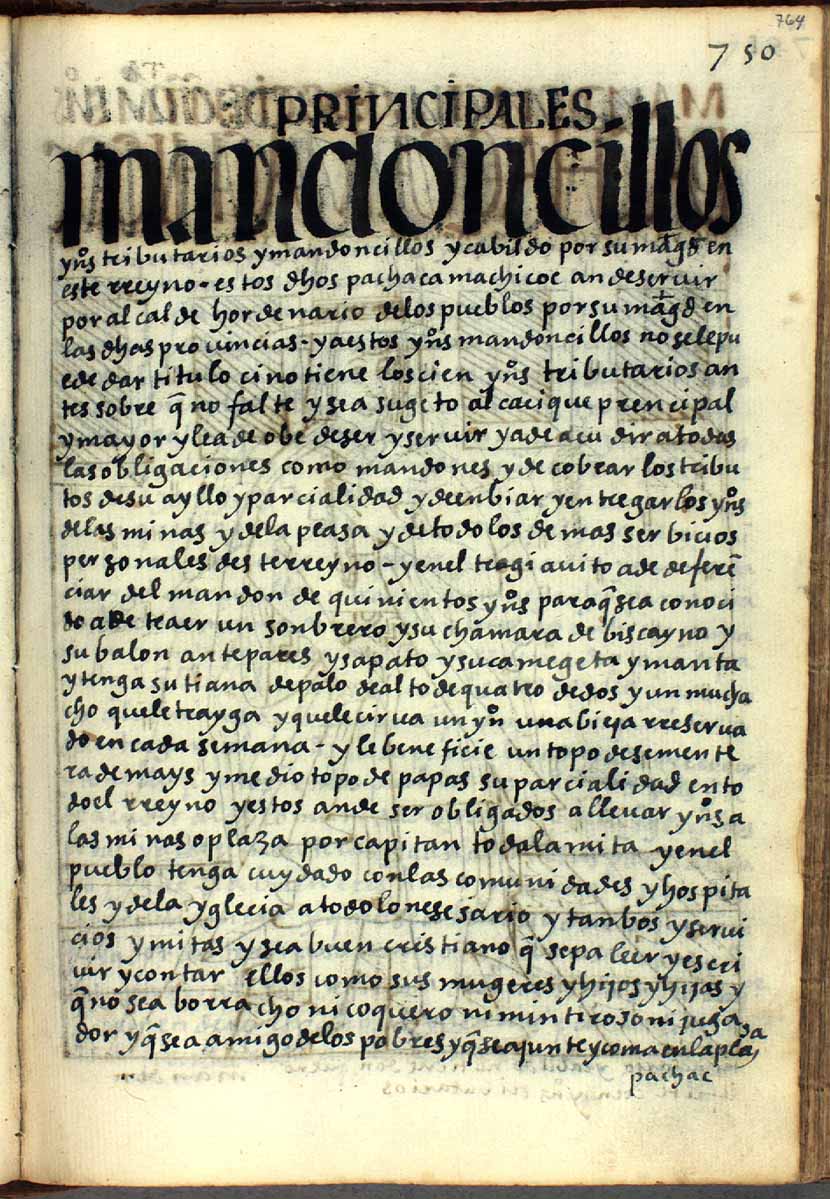 764
750
PRINCIPALES
mandoncillos
yns tributarios y mandoncillos y cabildo por su magd en
este rreyno - estos dhos pachaca machicoc an deservir
por alcalde hordenario delos pueblos por su magd en
las dhas provincias - y a estos yns mandoncillos no se le pu
ede dar titulo cino tiene los cien yns tributarios an
tes sobre q no falte y sea sugeto al cacique prencipal
y mayor y le a de obedeser y servir y a de acudir a todas
las obligaciones como mandones y de cobrar los tribu
tos de su ayllo y parcialidad y de enbiar y entregar los yns
de las minas y de la plasa y de todo los demas serbicios
personales deste rreyno - y en el tragi auito a de deferen
ciar del mandon de quinientos yns para q sea conoci
do a de traer un sonbrero y su chamara de biscayno y
su balon antepares y sapato y su camegeta y manta
y tenga su tiana de palo de alto de quatro dedos y un mucha
cho que le trayga y que le cirua un yn una bieja rreserva
do en cada semana - y le beneficie un topo de semente
ra de mays y medio topo de papas su parcialidad en to
do el rreyno y estos an de ser obligados a llevar yns a
las minas o plaza por capitan toda la mita y en el
pueblo tenga cuydado con las comunidades y hospita
les y de la yglecia a todo lo nesesario y tanbos y servi
cios y mitas y sea buen cristiano q sepa leer y escri
uir y contar ellos como sus mugeres y hijos y hijas y
q no sea borracho ni coquero ni mintiroso ni juga
dor y q sea amigo de los pobres y q se ajunte y coma en la plasa
pachac